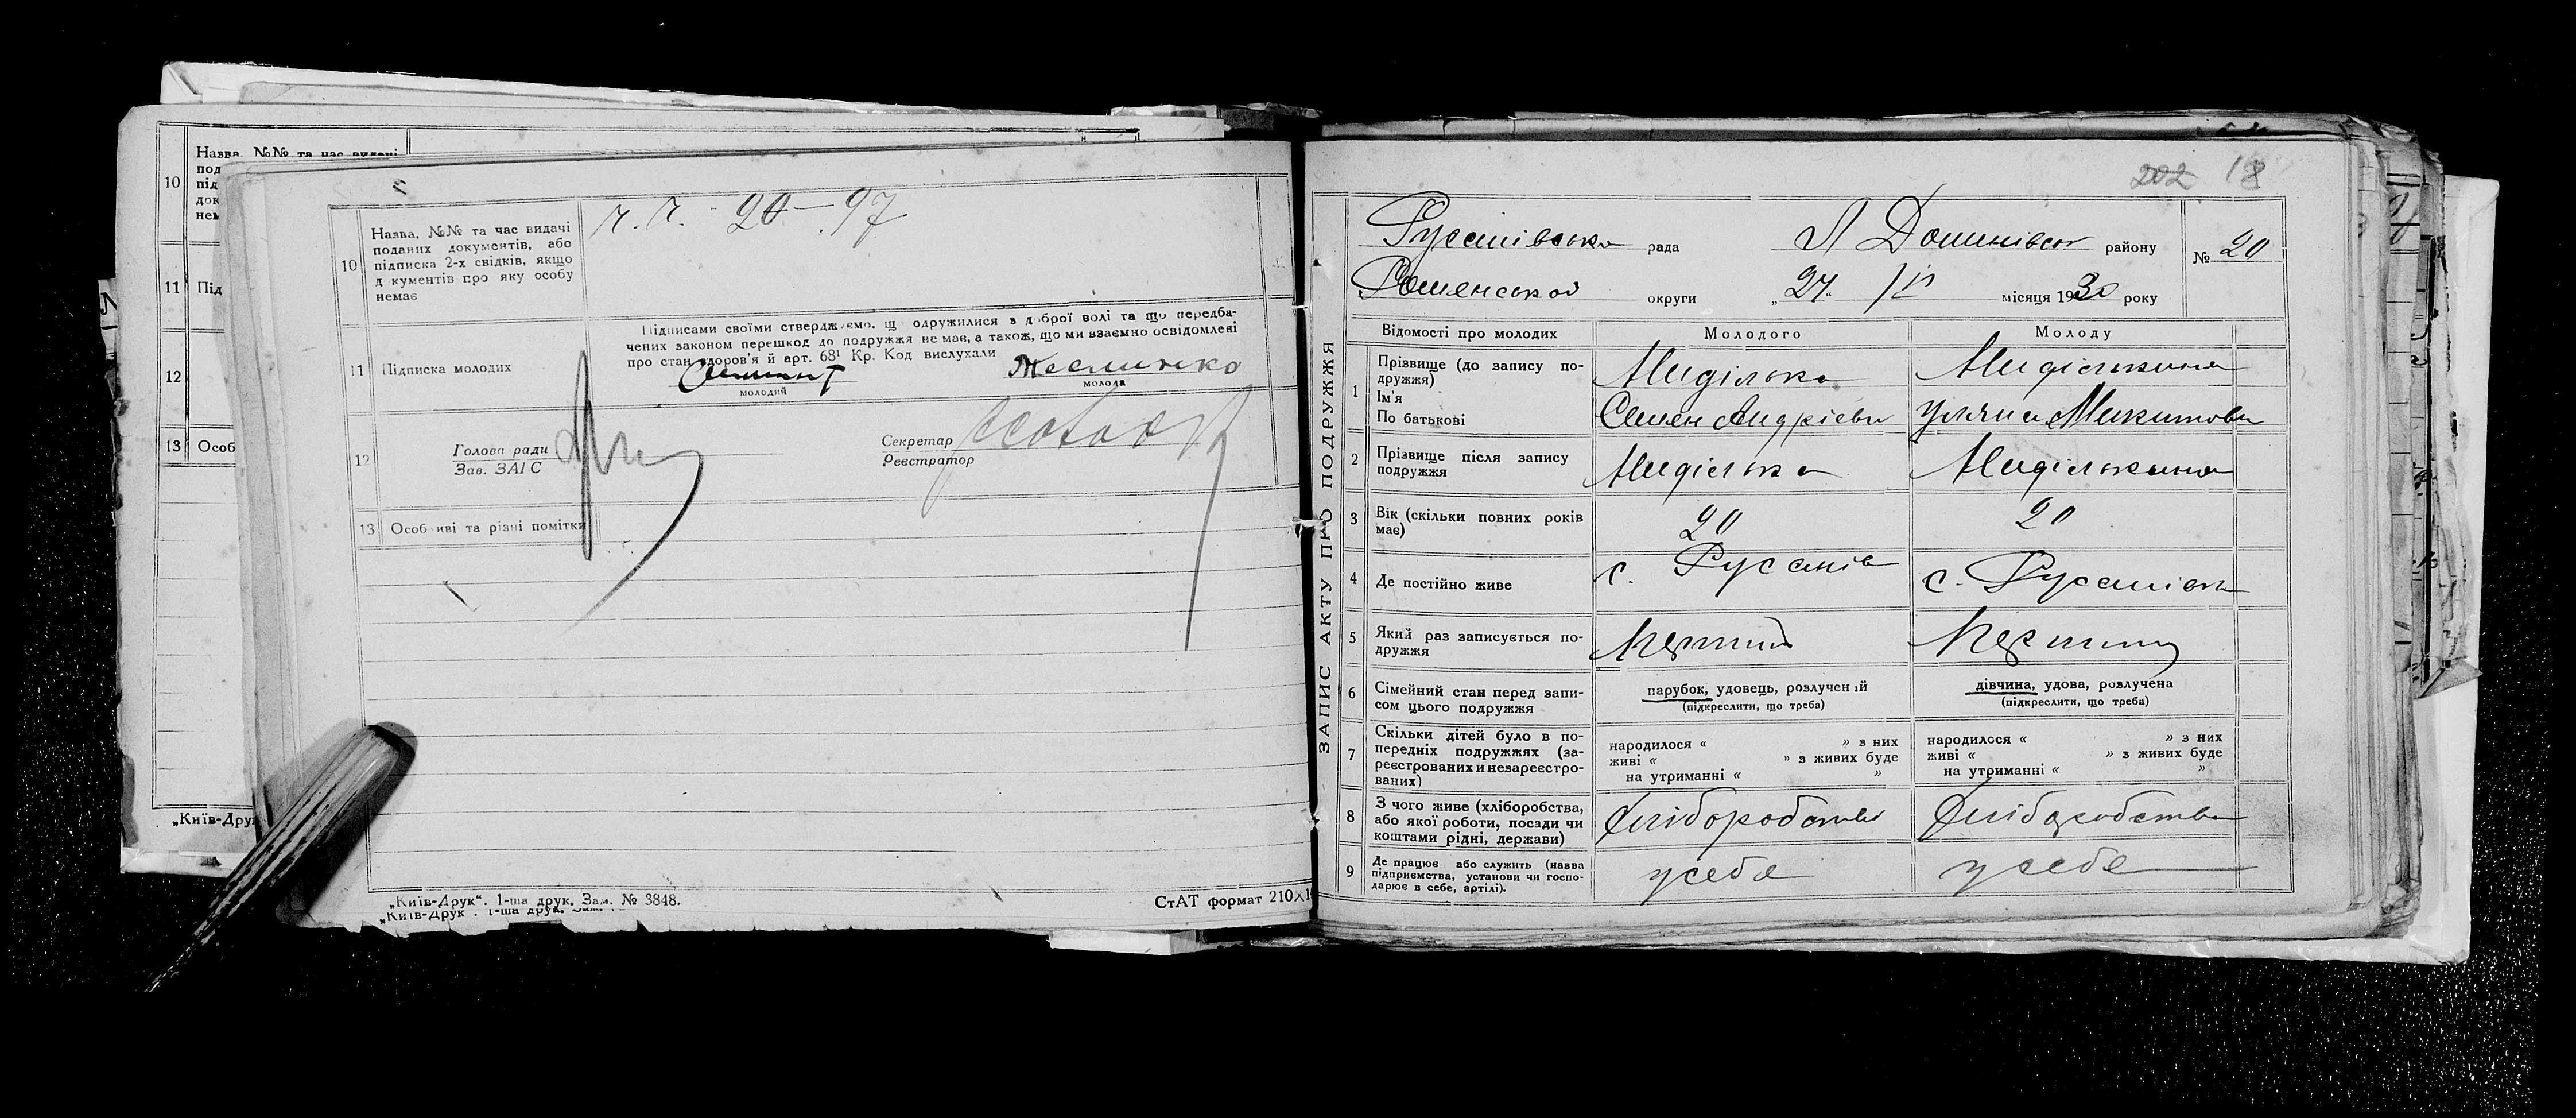 10
Назва, №№ та час видачі
11
Під
12
13
Особ
„Київ-Друк
10
Назва, №№ та час видачі
поданих документів, або
підписка 2-х свідків, якщо
документів про яку особу
немає
20—97
11
Підписка молодих
Підписами своїми стверджуємо, що одружилися з доброї волі та що передба-
чених законом перешкод до подружжя не має, а також, що ми взаємно освідомлені
про стан здоров'я й арт. 68¹ Кр. Код вислухали
молодий
молода
12
Голова ради
Зав. ЗАГС
Секретар
Реєстратор
13
Особливі та різні помітки
„Київ-Друк“. 1-ша друк. Зам. № 3848.
СтАТ формат 210×1
ЗАПИС АКТУ ПРО ПОДРУЖЖЯ
202 18
Русанівська рада район № 20
Роменської округи „27“ місяця 1930 року
Відомості про молодих Молодого Молоду
1
Прізвище (до запису по-
дружжя)
Ім'я
По батькові
Миділька
Семен Андрієви
Мидількина
Уляна Микитовн
2
Прізвище після запису
подружжя
Миділька
Мидількина
3
Вік (скільки повних років
має)
20
20
4
Де постійно живе
с. Русанів
с. Русанівк
5
Який раз записується по-
дружжя
Перший
6
Сімейний стан перед запи-
сом цього подружжя
парубок, удовець, розлучений
(підкреслити, що треба)
дівчина, удова, розлучена
(підкреслити, що треба)
7
Скільки дітей було в по-
передніх подружжях (за-
реєстрованих и незареєстро-
ваних)
народилося « » з них
живі « » з живих буде
на утриманні « »
народилося « » з них
живі « » з живих буде
на утриманні « »
8
З чого живе (хліборобства,
або якої роботи, посади чи
коштами рідні, держави)
хліборобства
хліборобства
9
Де працює або служить (назва
підприємства, установи чи госпо-
дарює в себе, артілі).
у себе
у себе